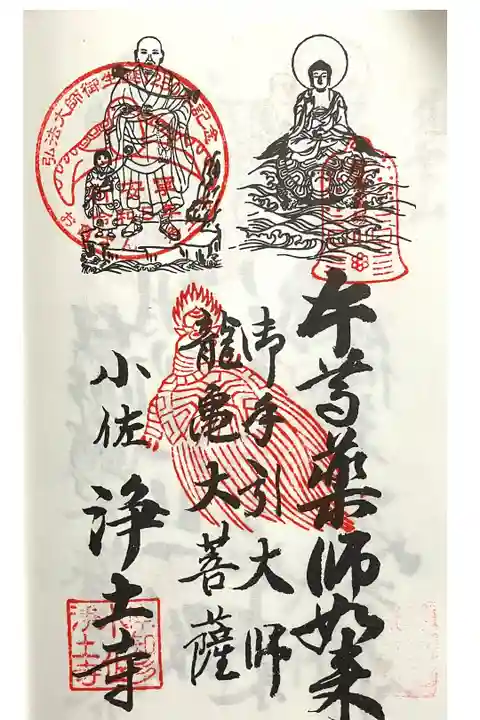 本尊薬師如来
御手引大師
龍亀大菩薩
小佐
浄土寺
弘法大師御生誕
記念
浄土寺